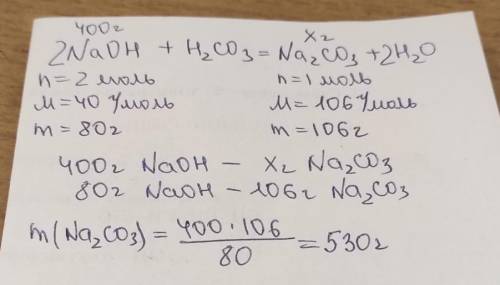 400г хг
2NaOH + H₂CO₃ = Na₂CO₃ + 2H₂O
n = 2 моль n = 1 моль
M = 40 г/моль M = 106 г/моль
m = 80г m = 106г
400г NaOH – хг Na₂CO₃
80г NaOH – 106г Na₂CO₃
m(Na₂CO₃) = 400·106 / 80 = 530г